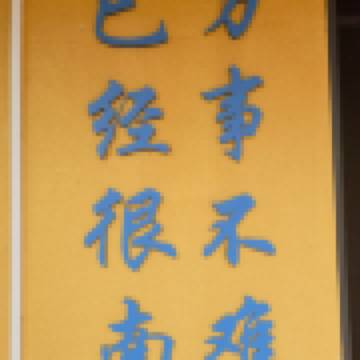 万事不难
已经很南